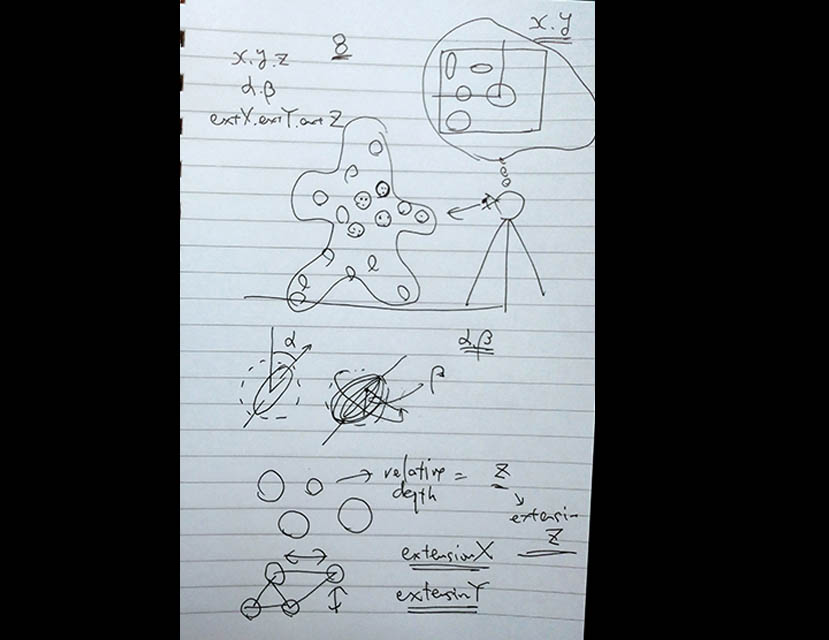 x.y
x.y.z
8
α.β
extX.extY.extZ
α
α,β
β
relative = z
depth
extensin
Z
extensionX
extensinY